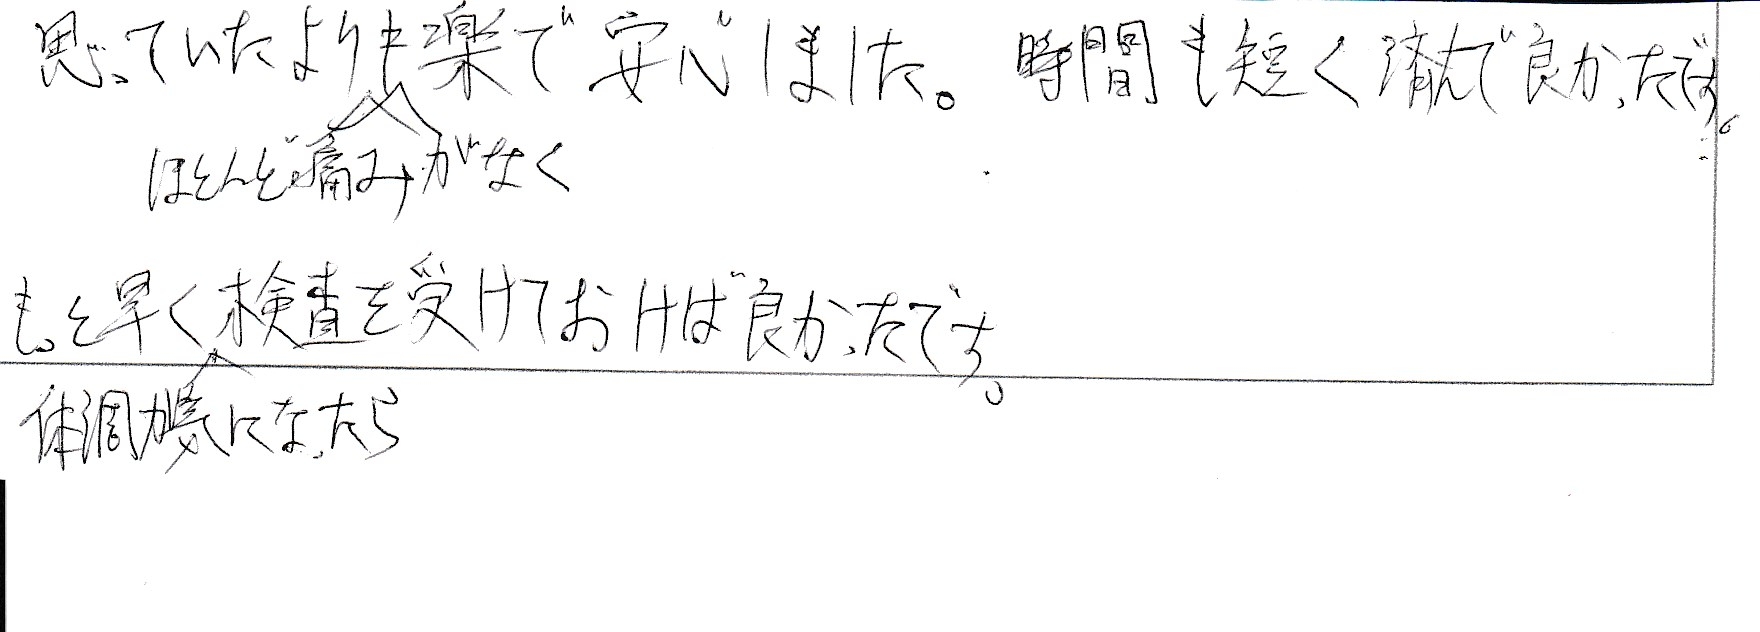 思っていたよりも楽で安心しました。時間も短く済んで良かったです。
ほとんど痛みがなく
もっと早く検査を受けておけば良かったです。
体調になったら